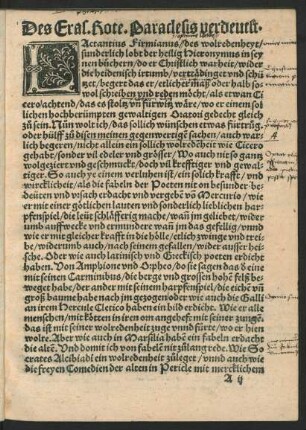 Des Eras. Rote. Paraclesis verdeutst.
LActantius Firmianus/des wolredenheyt/
sunderlich lobt der hellig Hieronymus in sey
nen büchern/ do er Christlich warheit/wider
die heidenisch irtumb/vertädingt vnd schü
tzet/begert das er/ etlicher maß oder halb so
wol schreiben vnd reden möcht/als etwan Ci
cero/achtend/das es stoltz vñ fürwitz wäre/wo er einem sol
lichen hochberümpten gewaltigen Oratori gedecht gleich
zů sein. Nůn wolt ich/das sollich wünschen etwas fürtrüg/
oder hilff zů disen meinen gegenwertigē sachen/auch nach
glich begeren/nicht allein ein sollich wolredēheit wie Cicero
gehabt/sonder vil edeler vnd grösser/Wo auch nit so gantz
wolgeziert vnd geschmuck/doch vil krefftiger vnd gewal
tiger. So auch ye einem verluhen ist/ein solich krafft/vnd
wircklicheit/als die fabeln der Poeten nit on besunder be-
deütten vnd vrsach erdacht vnd vergebē vō Mercurio/wie
er mit einer götlichen růten vnd sonderlich lieblichen har-
pfenspiel/die leüt schläfferig mache/wañ jm geliebet/wider
umb auffweckt vnd ermundert wañ jm das gefellig/vnnd
wie er mit gleicher krafft in die hölle/etlich zwinge vnd trei-
be/widerumb auch/nach seinem gefallen/wider ausser hei-
sche. Oder wie auch latinisch vnd Greckisch poeten erdicht
haben. Von Amphione vnd Orpheo/do sie sagen das deine
mit seinen Carminibus/der berge vnd grossen hohē felß be-
weget habe/der ander mit seinem harpfenspiel/die eichē vñ
groß baume habe nach jm gezogen oder wie auch die Galli
an irem Hercule Clerico haben ein bild erdicht. Wie er alle
menschen/mit kötten in iren orn angehefft mit seiner zungē.
das ist mit seiner wolredenheit zuge vnnd fürte/wo er hien
wolte. Aber wie auch in Marsilia habē ein fabeln erdacht
die alten. Vnd domit ich von fabelē nit zů lang rede. Wie So
crates Alcibiadi ein wolredenheit zůleget/vnnd auch wie
die freyen Comedien der alten in Pericle mit mercklichem
A ij